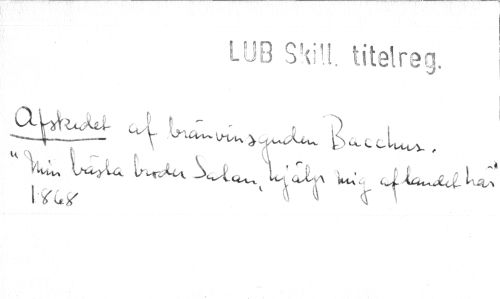 LUB Skill. titelreg.
Afskedet af bränvinsguden Bacchus.
"Min bästa broder Satan, hjälp mig aflandet här"
1868